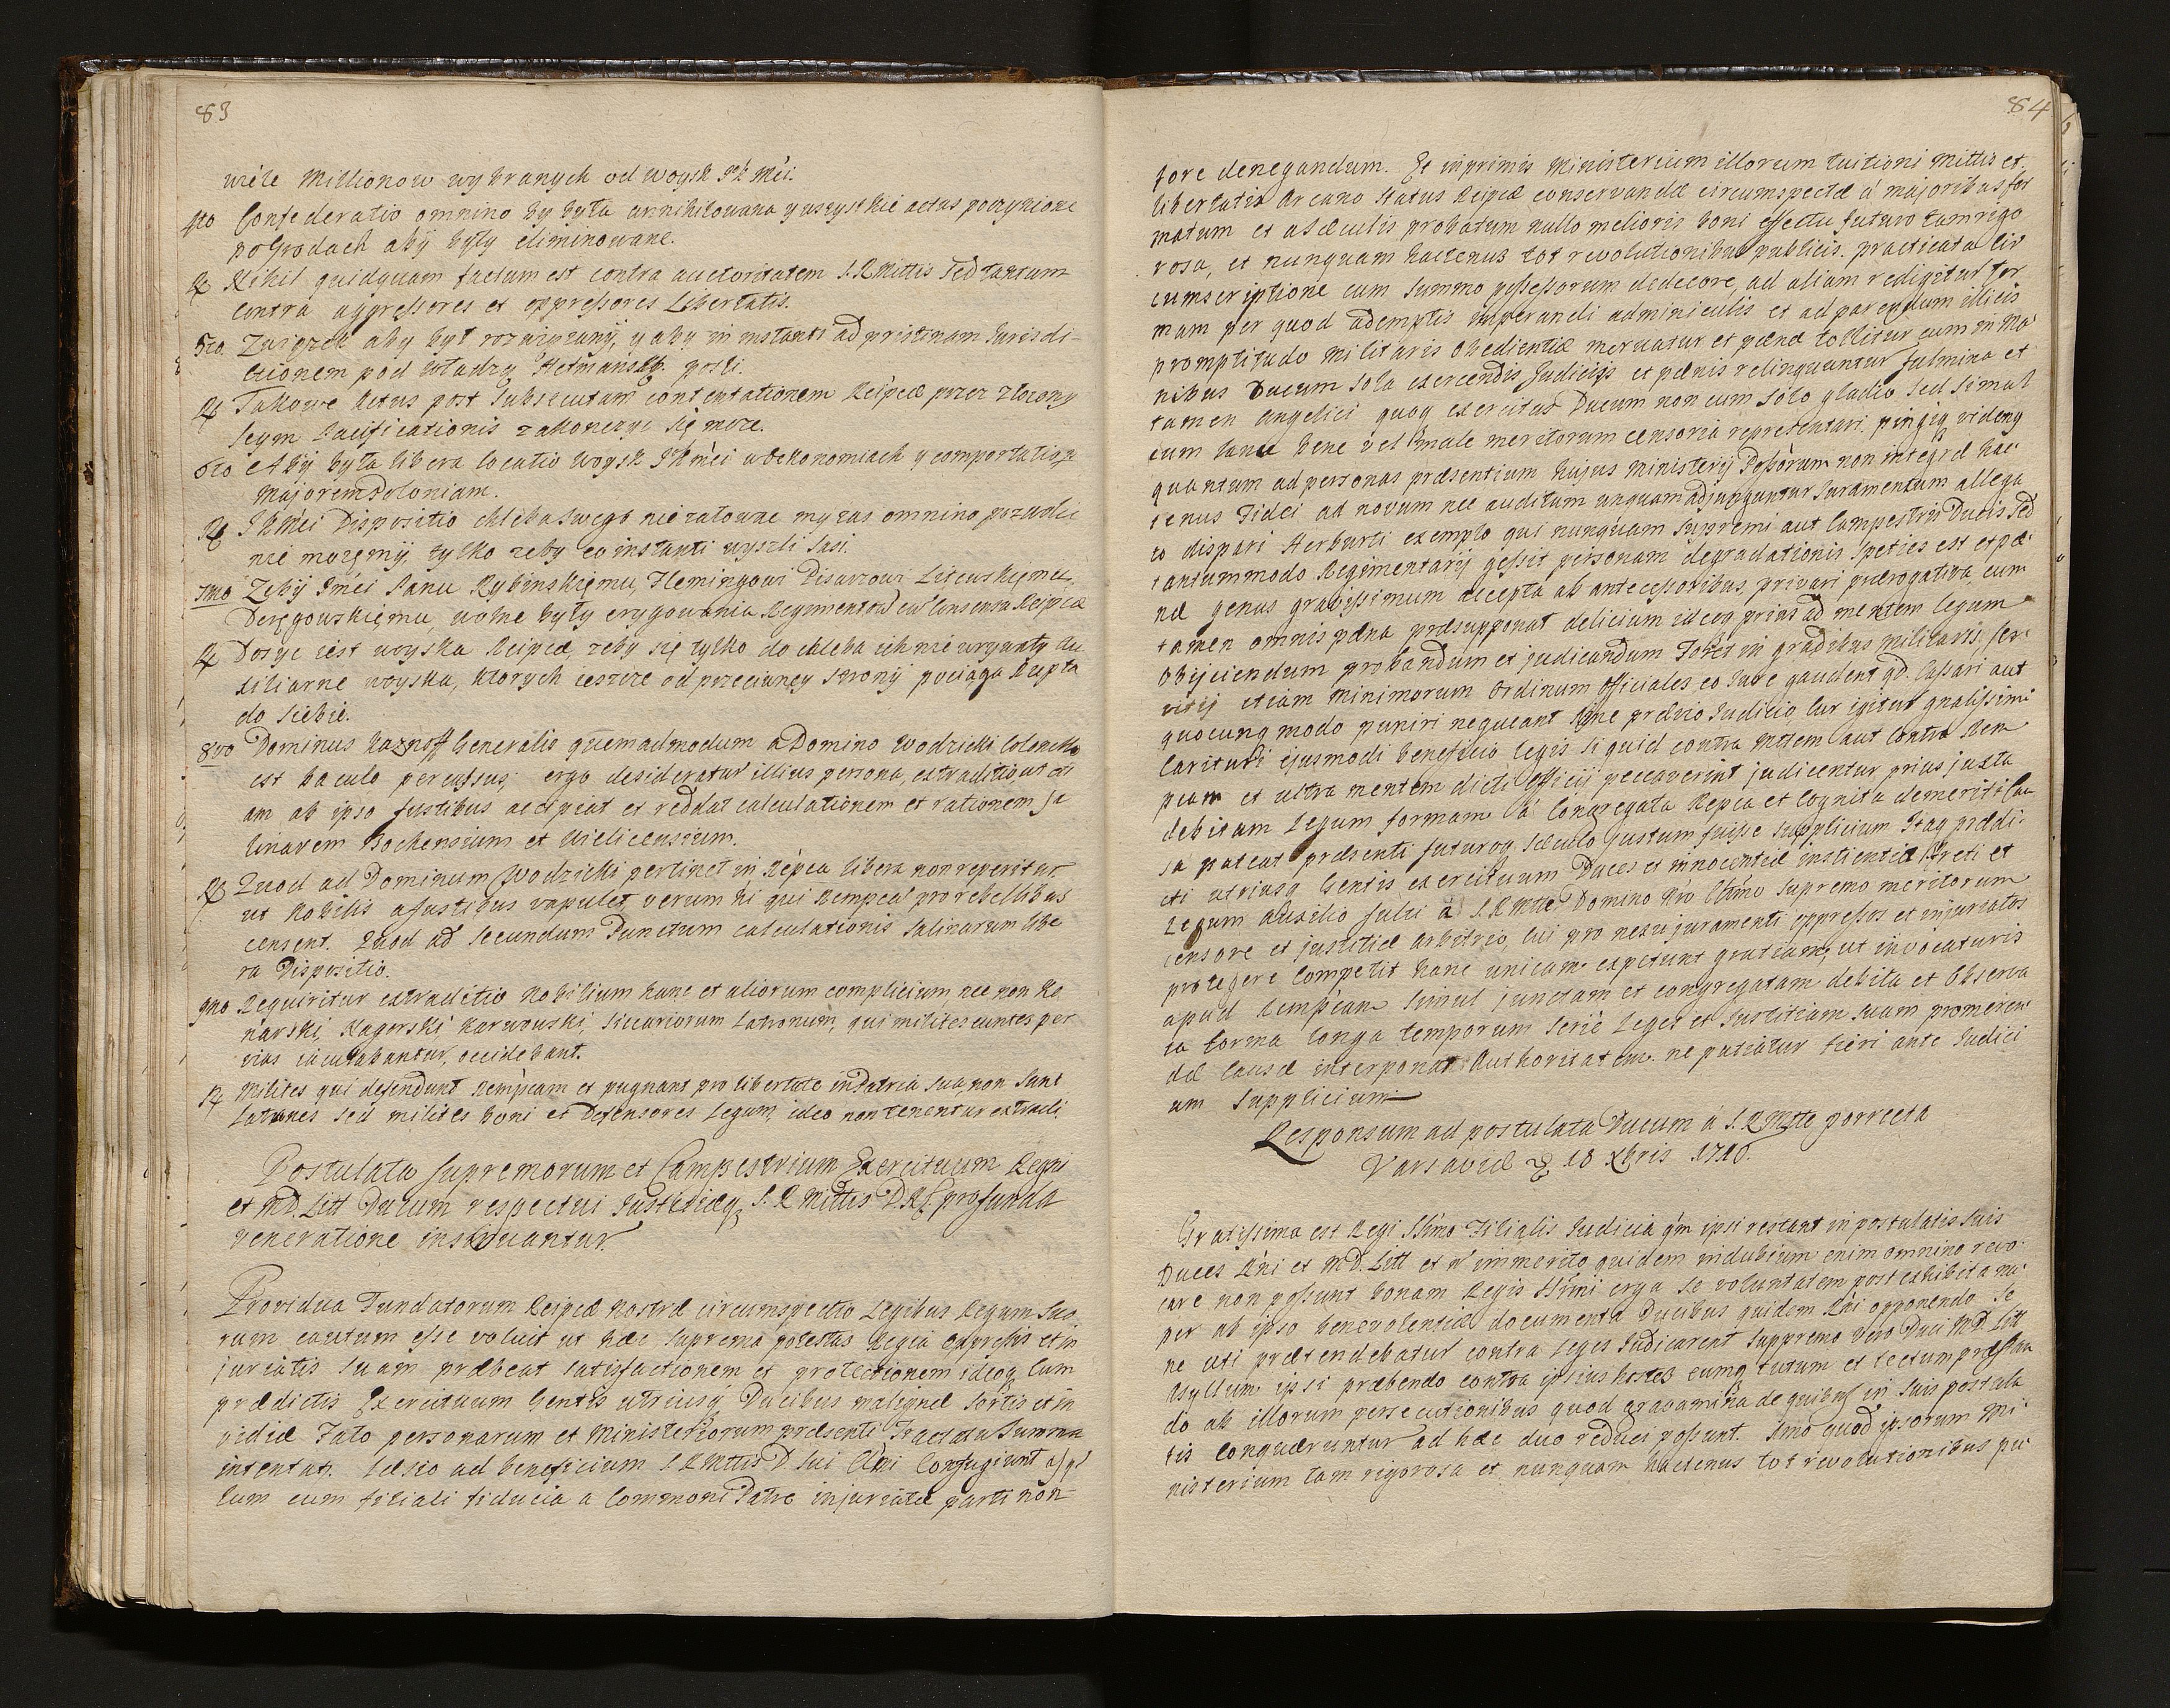 83
wiele Millionow wybranych od woysk JK Mći.
4to Confederatio omnino by była annihilowana y wszystkie actus poczynione
po Grodach aby były eliminowane.
Rx Nihil quidquam factum est contra auctoritatem S. R Mttis sed tantum
contra aggressores et oppressores Libertatis.
5to. Związek aby był rozwiązany, y aby in instanti ad pristinam Jurisdi-
ctionem pod władzą Hetmańską poszli.
Rx Takowe Actus post subsecutam contentationem Reipcæ przez złożony
Seym Pacificationis zakonczyc się może.
6to Aby była libera locatio woysk JK mći w Oekonomiach y comportatio
Majorem Poloniam.
Rx JK mći Dispositio chleba swego nie załowne my zas omnino pozwolic
nie możemy tylko zeby eo instanti wyszli Sasi.
7mo Zeby Jmći Panu Rybinskiemu, Flemingowi Pisarzowi Litewskiemu,
Deręgowskiemu, wolne były erygowania Regimentow cu consensu Reipcæ
Rx Dosyc iest woyska Reipcæ, zeby się tylko do chleba ich nie wrywały Au
xiliarne woyska, ktorych ieszcze od przeciwney strony pociąga Rzpta
do siebie.
8vo Dominus Kaznoff Generalis quemadmodum a Domino Wodzicki Colonello
est baculo percussus, ergo desideratur illius persona, extraditio ut eti
am ab ipso fustibus accipiat et reddat calculationem et rationem Sa
linarem Bochensium et Wielicensium.
Rx Quod ad Dominum Wodzicki pertinet in Repca libera non reperitur
ut Nobilis a fustibus vapulet, verum hi qui Rempcā pro rebellibus
censent. Quod ad secundum Punctum calculationis Salinarum libe
ra Dispositio.
9no Requiritur extraditio Nobilium hunc et aliorum complicium nec non Ko
narski, Kagorski, Karwowski, Sicariorum Latronum, qui milites euntes per
vias iaculabantur, occidebant.
Rx Milites qui defendunt Rempcam et pugnant pro libertate in Patria sua, non sunt
Latrones sed milites boni et Defensores Legum, ideo non tenentur extradi
Postulata supremorum et Campestrium Exercituum Regni
et M.D. Litt Ducum respectui Justitiæq S. R Mttis D. N Cl profunda
veneratione insinuantur.
Providua Fundatorum Reipcæ Nostræ circumspectio Legibus Regum Suo
rum cautum esse voluit ut hæc suprema potestas Regia oppressis et in
juriatis suam præbeat satisfactionem et protectionem ideoq Cum
prædictis Exercituum Gentis utriusq Ducibus malignæ sortis et in
vidiæ Fato personarum et Ministeriorum præsenti Tractatu summa
intentat. Læsio ad beneficium S R Mttis D. sui Clmi confugiunt asy
lum cum filiali fiducia a Commoni Patre injuriatæ parti non
84
fore denegandum. Et inprimis Ministerium illorum tuitioni Mttis et
libertatis Arcano Status Reipcæ conservandæ circumspecte à majoribus for
matum et a sæculis probatum nullo melioris boni effectu futuro tam rigo
rosa, et nunquam hactenus tot revolutionibus publicis practicata cir
cumscriptione cum summo possessorum dedecore, ad aliam redigitur for
mam per quod ademptis imperandi adminiculis et ad parendum illicis
promptitudo militaris Obedientiæ mervatur et pæna tollitur cum in Ma
nibus Ducum sola exercendis Judicijs et pænis relinquantur fulmina et
tamen angelici quoq exercitus Ducum non cum solo gladio sed simul
cum lance bene vel male meritorum censoria repræsentari pingiq videnq
quantum ad personas præsentium hujus Ministerij Possorum non integræ hac
tenus Fidei ad novum nec auditum unquam adjunguntur Juramentum allega
to dispari Herburti exemplo qui nunquam supremi aut Campestris Ducis sed
tantummodo Regimentarij gessit personam degradationis species est et pæ
næ genus gravissimum accepta ab antecessoribus, privari prærogativa, cum
tamen omnis pæna præsupponat delicium ideoq prius ad mentem Legum
Objiciendum probandum et judicandum Foret in gradibus militaris ser
vitij etiam Minimorum Ordinum Officiales eo Jure gaudent qd. Cassari aut
quocunq modo puniri nequeant sine prævio Judicio, Cur igitur gnalissimi
Carituri ejusmodi beneficio legis si quid contra Mttem aut contra Rem
pcam et ultra mentem dicti officij peccaverint judicentur prius juxta
debitam Legum formam â Congregata Repca et Cognita demeriti Cau
sa pateat præsenti futuroq sæculo Justum fuisse supplicium Itaq prædi
cti utriusq Gentis exercituum Duces et innocentiæ inscientiæ freti et
Legum auxilio fulti à S. R Mtte Domino Nro Clmo supremo meritorum
censore et Justitiæ Arbitrio, Cui pro nexu juramenti oppressos et injuriatos
protegere Competit hanc unicam expetunt gratiam, ut invocaturis
apud Rempcam simul junctam et congregatam debita et Observa
ta forma longa temporum serie Leges et Justitiam suam promeren
dæ Causæ interponat Authoritatem ne patiatur fieri ante Judici
um Supplicium
Responsum ad postulata Ducum a S. R Mtte porrecta
Varsaviæ D 18 Xbris 1716.
Gratissima est Regi Clmo Filialis Judicia qm ipsi restant in postulatis suis
Duces Rni et M.D. Litt et n immerito quidem indubium enim omnino revo
care non possunt bonam Regis Clmi erga se voluntatem post exhibita nu
per ab ipso benevolentiæ documenta Ducibus quidem Rni opponendo se
ne uti prætendebatur contra Leges Judicarent supremo vero Duci M.D. Litt
Asyllum ipsi præbendo contra ipsius hostes eumq tutum et tectum præstan
do ab illorum persecutionibus quod gravamina de quibus in suis postula
tis conqueruntur ad hæc duo reduci possunt. 1mo quod ipsorum Mi
nisterium tam rigorosa et nunquam hactenus tot revolutionibus pu